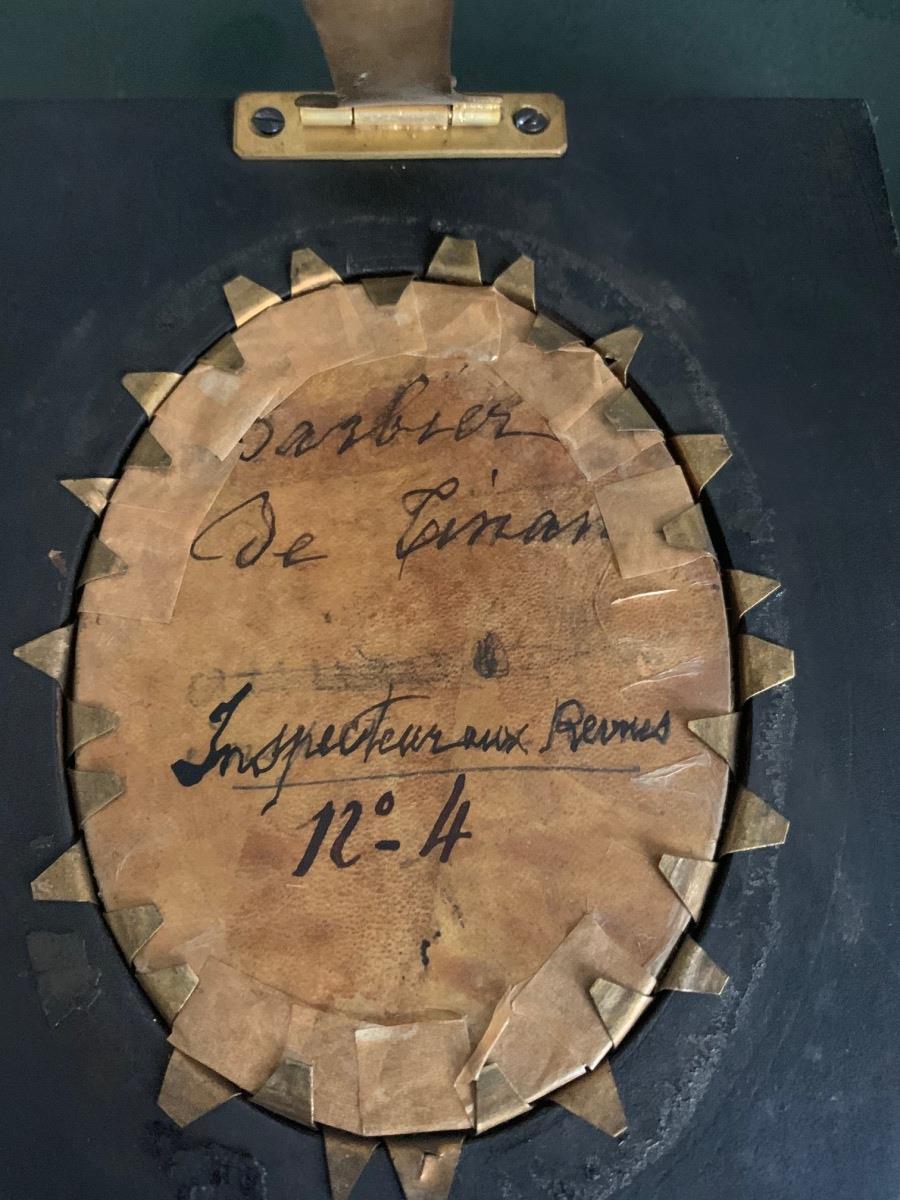 Barbier
De Tinan
Inspecteur aux Revues
N° 4